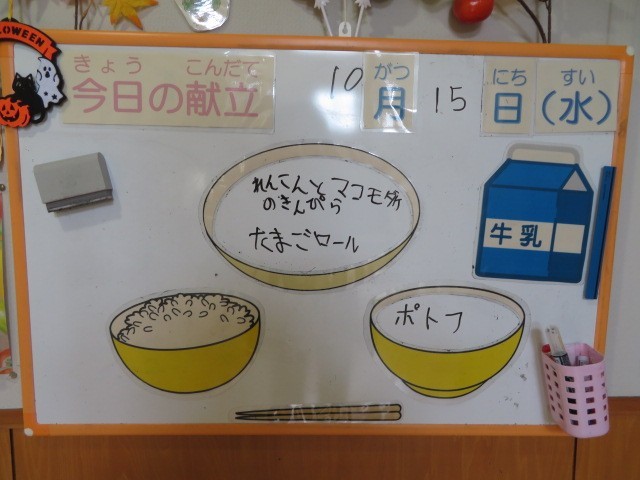 LOWEEN
きょう こんだて
今日の献立
10 がつ 15 にち すい
月 日 (水)
れんこんとマコモダケ
のきんぴら
たまごロール
牛乳
ポトフ